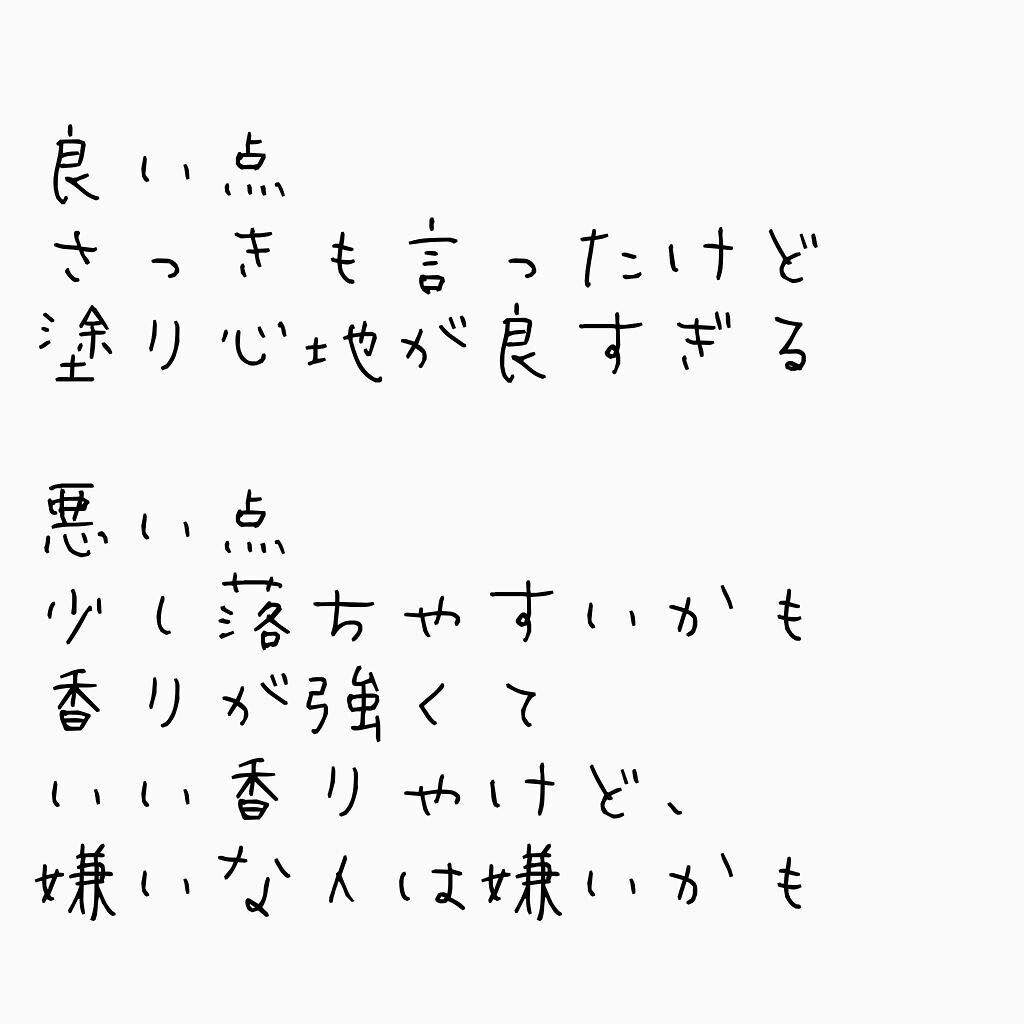 良い点
さっきも言ったけど
塗り心地が良すぎる
悪い点
少し落ちやすいかも
香りが強くて
いい香りやけど、
嫌いな人は嫌いかも